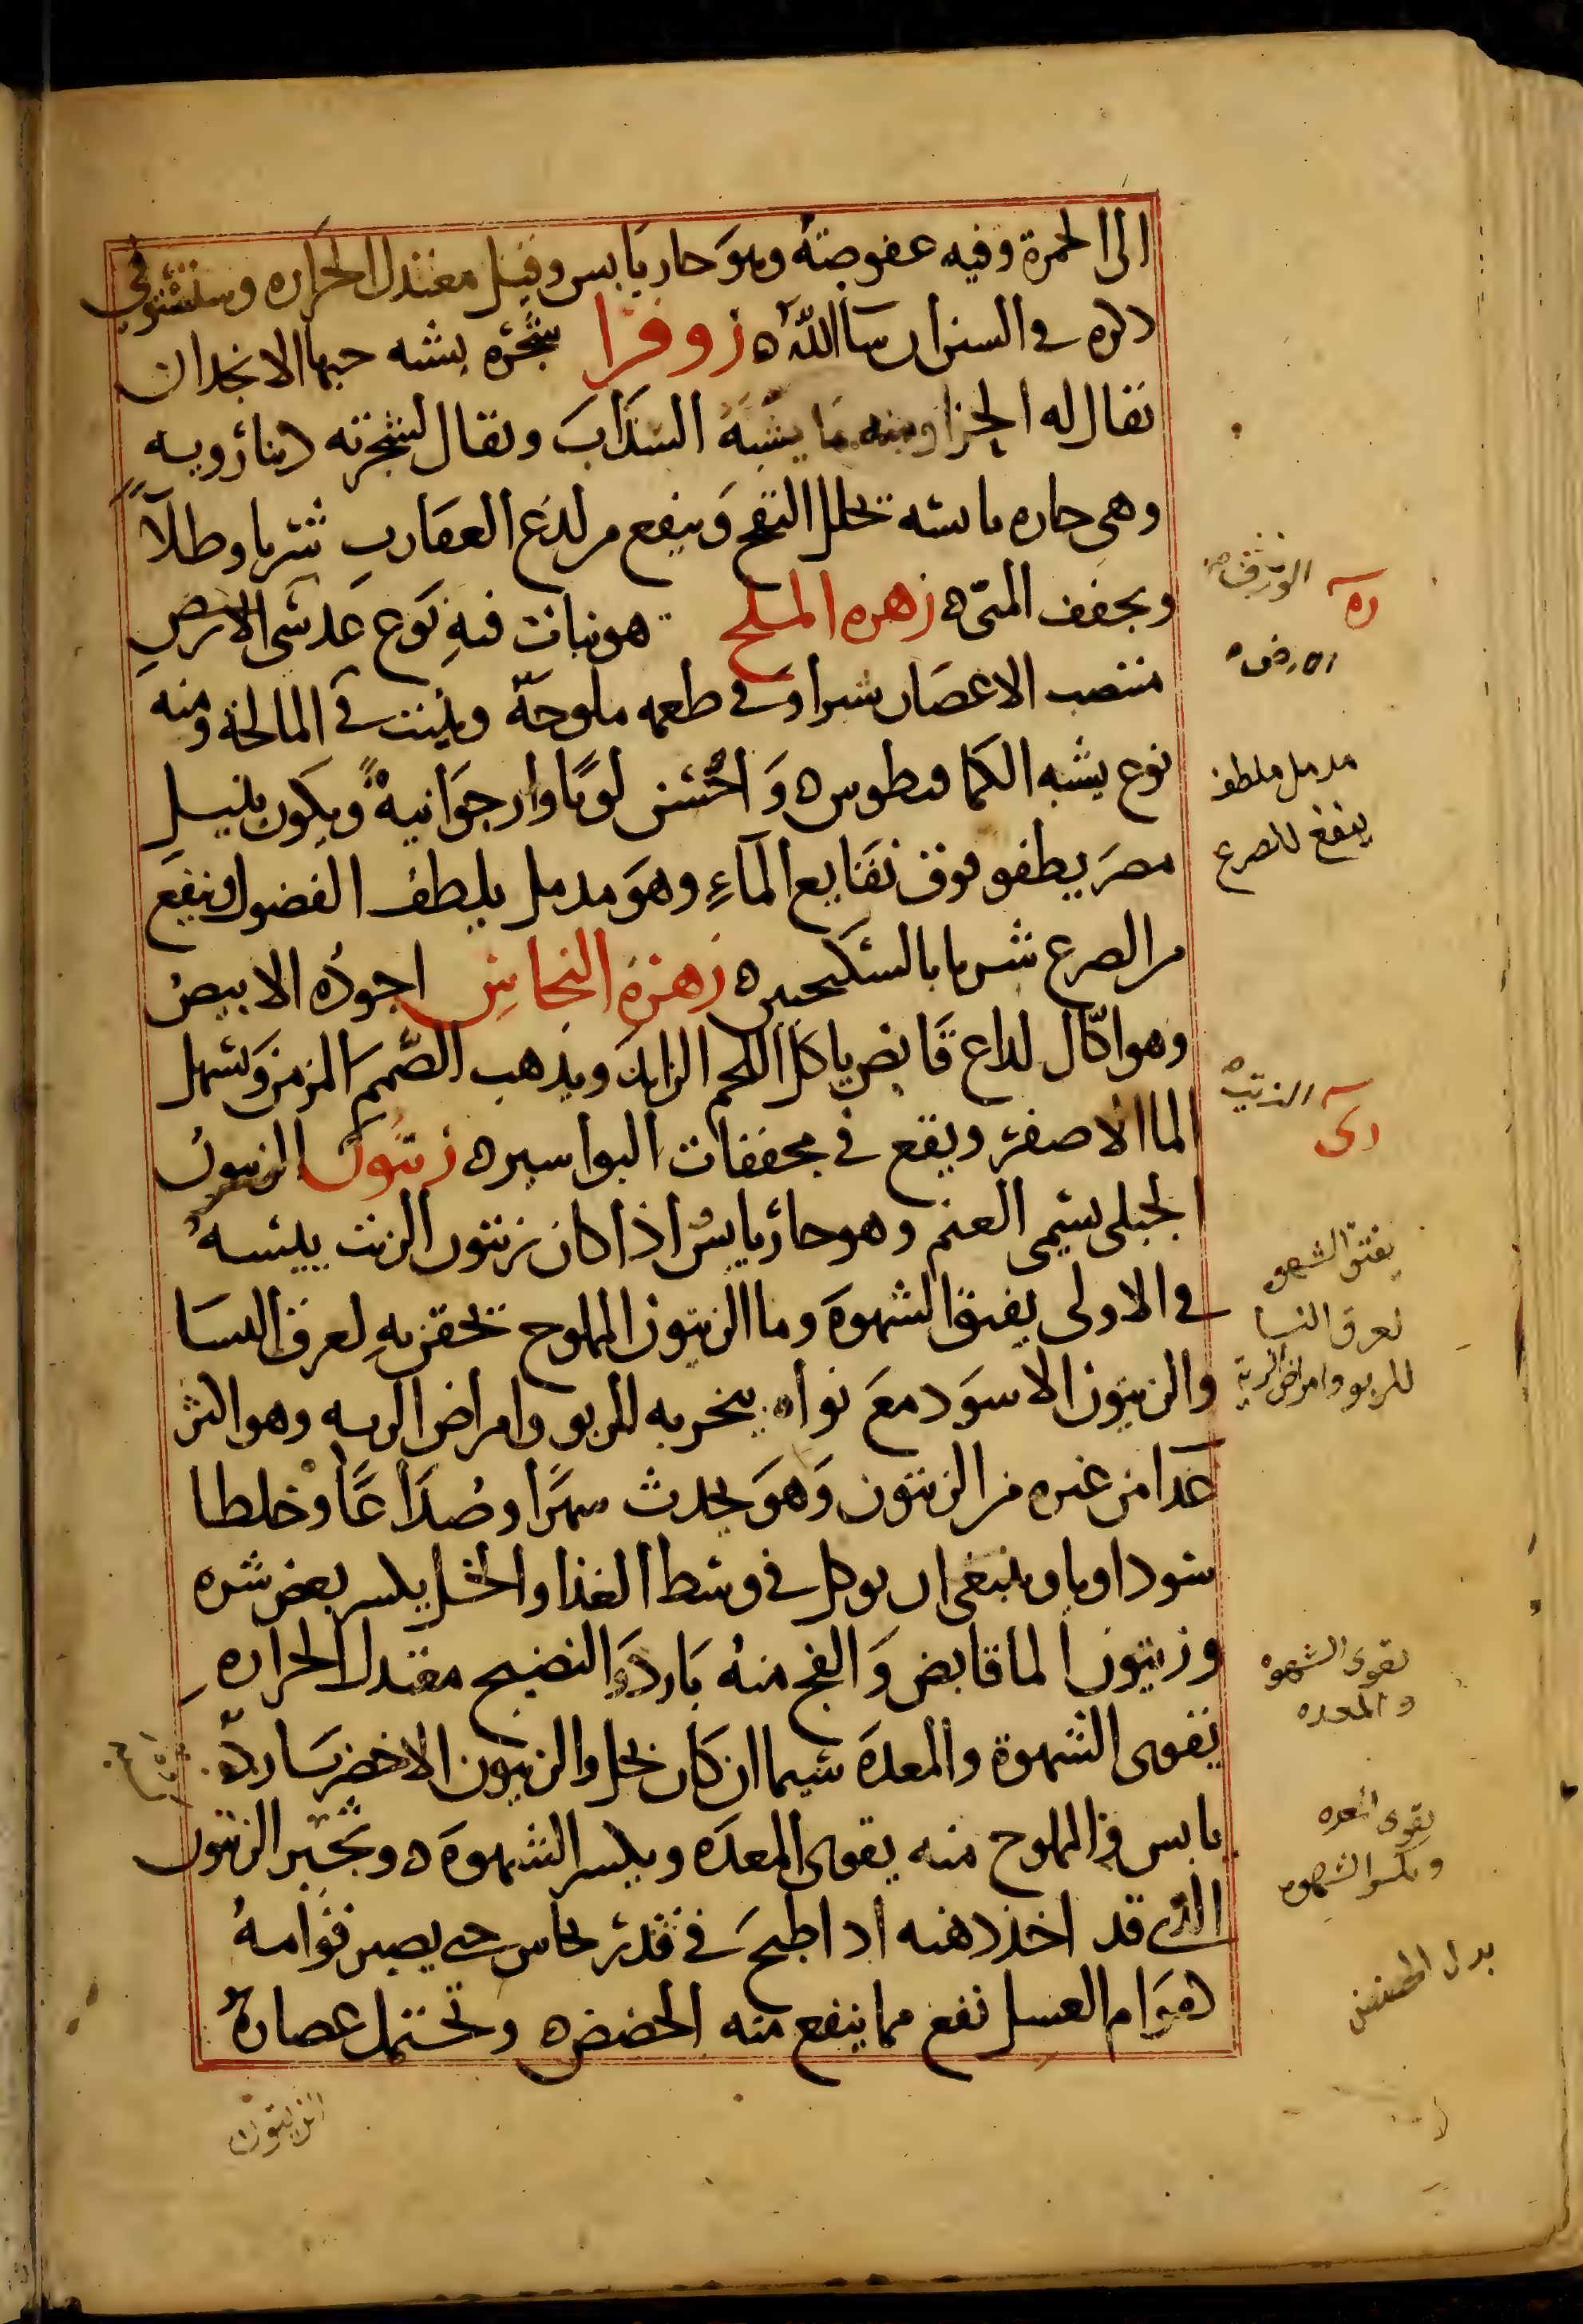 الى الحمرة وفيه عفوصة وهو حار يابس وقيل معتدل الحراره وسنستوفي
ذكره في السين ان شا الله ه زوفرا شجره يشبه حبها الانجدان
يقال له الحزا ومنه ما يشبه السذاب ويقال لشجرته دينارويه
وهى حاره يابسه تحلل النفخ وينفع من لدغ العقارب شربا وطلاً
ويجفف المنى ه زهره الملح هو نبات فيه نوع عدسى الارض
منتصب الاغصان شبرا وفي طعمه ملوحة وينبت في المالحة ومنه
نوع يشبه الكمافيطوس ه واخشن لونا وارجوانية ويكون بنيل
مصر يطفو فوق نقايع الماء وهو مدمل يلطف الفضول وينفع
من الصرع شربا بالسكنجبين ه زهرة النحاس اجوده الابيض
وهو اكّال لداع قابض ياكل اللحم الزايد ويذهب الصمم المزمن ويسهل
الما الاصفر ويقع في مجففات البواسير ه زيتون الزيتون
الجبلى يسمى العتم وهو حار يابس اذا كان زيتون الزيت يبسه
في الاولى يفتق الشهوة وما الزيتون المملوح تحقن به لعرق النسا
والزيتون الاسود مع نواه يبخر به للربو وامراض الريه وهو اكثر
غدا من غيره من الزيتون وهو يحدث سهرا وصداعا وخلطا
سوداويا وينبغى ان يوكل في وسط الغذا والخل يكسر بعض شره
وزيتون الما قابض والفج منه بارد والنضيج معتدل الحراره
يقوى الشهوة والمعدة سيما ان كان بخل والزيتون الاخضر بارد
يابس والمملوح منه يقوى المعده ويكسر الشهوة ه وثجير الزيتون
الذى قد اخذ دهنه اذا طبخ في قدر نحاس حتى يصير قوامه
كقوام العسل نفع مما ينفع منه الحضض ه وتحتمل عصارة
الزيتون
زه
الارض
مدمل ملطف
ينفع للصرع
زى
يفتق الشهوه
لعرق النسا
للربو وامراض الرية
يقوى الشهوة
والمعده
يقوى المعده
ويكسر الشهوه
بدل الحضض